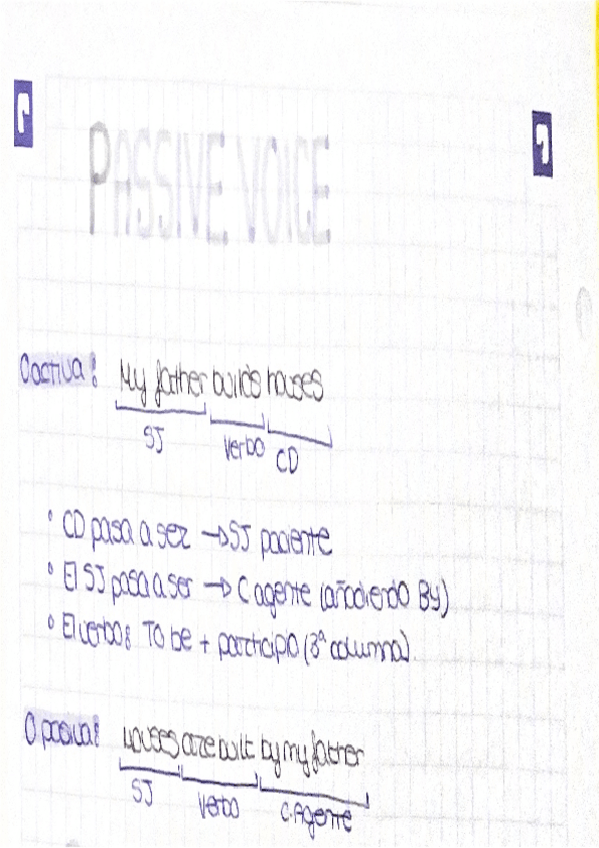 PASSIVE VOICE
O activa: My father builds houses
SJ Verbo CD
• CD pasa a ser → SJ paciente
• El SJ pasa a ser → C agente (añadiendo By)
• El verbo: To be + participio (3ª columna).
O pasiva: Houses are built by my father
SJ Verbo C. Agente